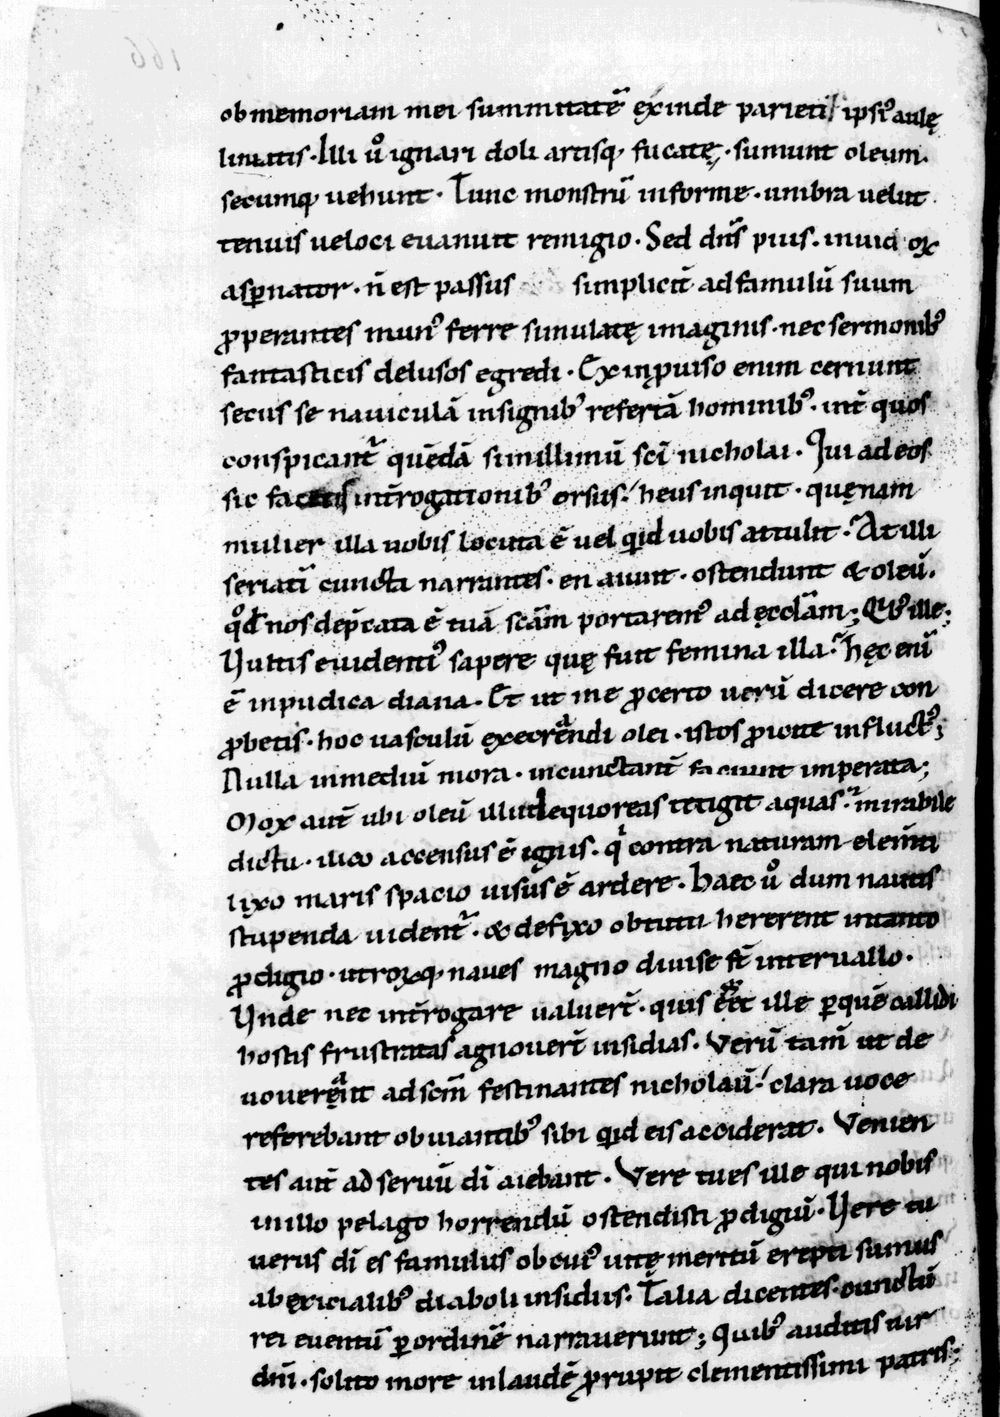 ob memoriam mei summitatē exinde parieti ipsiꝰ aulę
linitis. Illi ů ignari doli artisq; fucatę. sumunt oleum.
secumq; uehunt. Tunc monstrū informe. umbra uelut
tenuis ueloci euanuit remigio. Sed dn̄s pius. inuid ox
aspnator. n̄ est passus simplicit̄ ad famulū suum
ꝓperantes munꝰ ferre simulatę imaginis. nec sermonibꝰ
fantasticis delusos egredi. Ex inꝓuiso enim cernunt
secus se nauiculā insignibꝰ refertā hominibꝰ. int̄ quos
conspicant̄ quēdā simillimū sc̄i nicholai. Qui ad eos
sic facetis int̄rogationibꝰ orsus. heus inquit. quęnam
mulier illa uobis locuta ē uel qid uobis attulit. At illi
seriatī cuncta narrantes. en aiunt. ostendunt & oleū.
qd̊ nos dep̄cata ē tuā scām portaremꝰ ad ęccl̄am; Qibꝰ ille;
Vultis euidentiꝰ sapere quę fuit femina illa. hęc eni̅
ē inpudica diana. Et ut me ꝓ certo uerū dicere con
ꝓbetis. hoc uasculū execrandi olei. istos ꝓicite in fluctꝰ;
Nulla in mediū mora. incunctant̄ faciunt imperata;
Mox aut̄ ubi oleū illud equoreas tetigit aquas. mirabile
dictu. ilico accensus ē ignis. qi contra naturam elem̄ti
lixo maris spacio uisus ē ardere. Haec ů dum nautis
stupenda uident̄. & defixo obtutu hererent in tanto
ꝓdigio. utroꝝq; naues magno diuise st̄ interuallo.
Vnde nec int̄rogare ualuer̄t. quis eēt ille ꝑ quē callidi
hostis frustratas agnouer̄t insidias. Verū tam̄ ut de
uouerant ad sc̄m festinantes nicholaū. clara uoce
referebant obuiantibꝰ sibi qid eis acciderat. Venien
tes aut̄ ad seruū dī aiebant. Vere tu es ille qui nobis
in illo pelago horrendū ostendisti ꝓdigiū. Vere tu
uerus dī es famulus ob cuiꝰ uitę meritū erepti sumus
ab exicialibꝰ diaboli insidiis. Talia dicentes. cunctū
rei euentū ꝑ ordinē narrauerunt; Quibꝰ auditis uir
dn̄i. solito more in laudē ꝓrupit clementissimi patris;